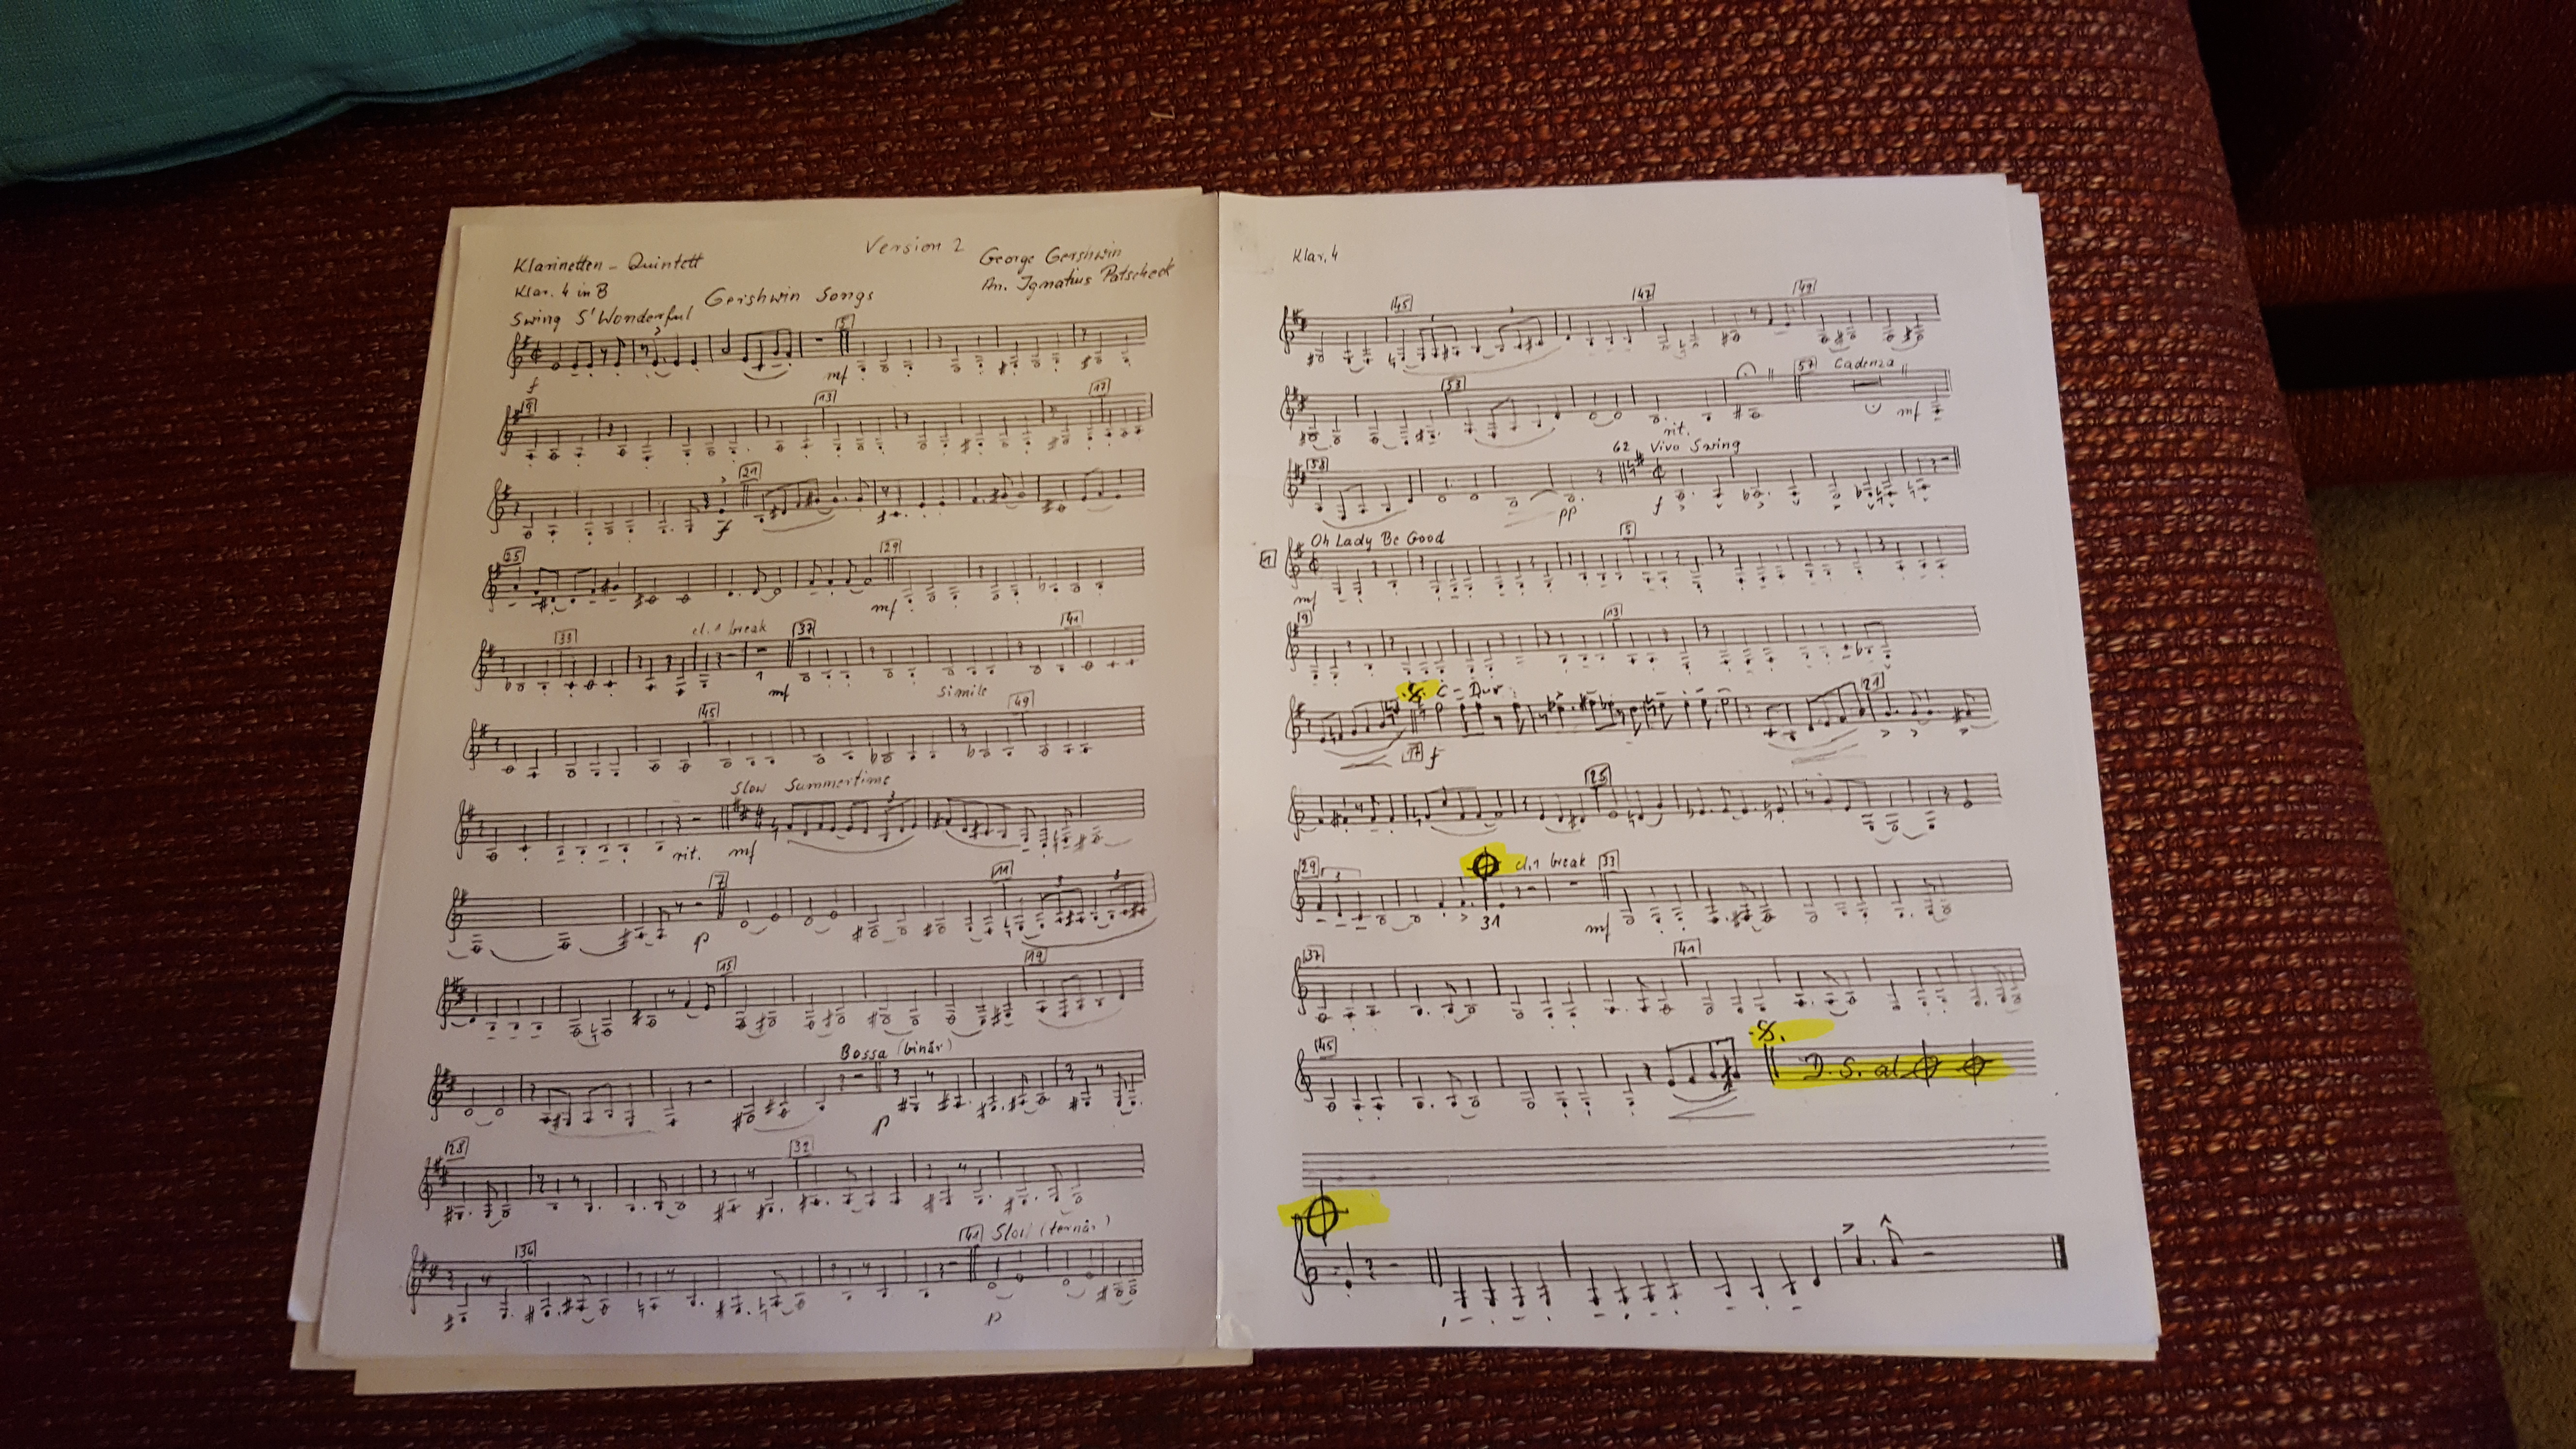 Version 2
Klarinetten - Quintett
George Gershwin
Klar. 4 in B
Arr. Ignatius Patscheck
Gershwin Songs
Swing S'Wonderful
5
mf
f
9
13
17
21
f
25
29
mf
33
cl. 1 break
37
41
mf
Simile
45
49
Slow Summertime
3
rit. mf
7
11
3
3
p
15
19
Bossa (binär)
p
28
32
36
41 Slow (ternär)
p
Klar. 4
45
47
49
53
57 Cadenza
rit.
mf
58
62 Vivo Swing
pp
f
1
Oh Lady Be Good
5
mf
9
13
C-Dur
17
f
21
25
29
3
cl. 1 break
33
31
mf
37
41
45
D.S. al